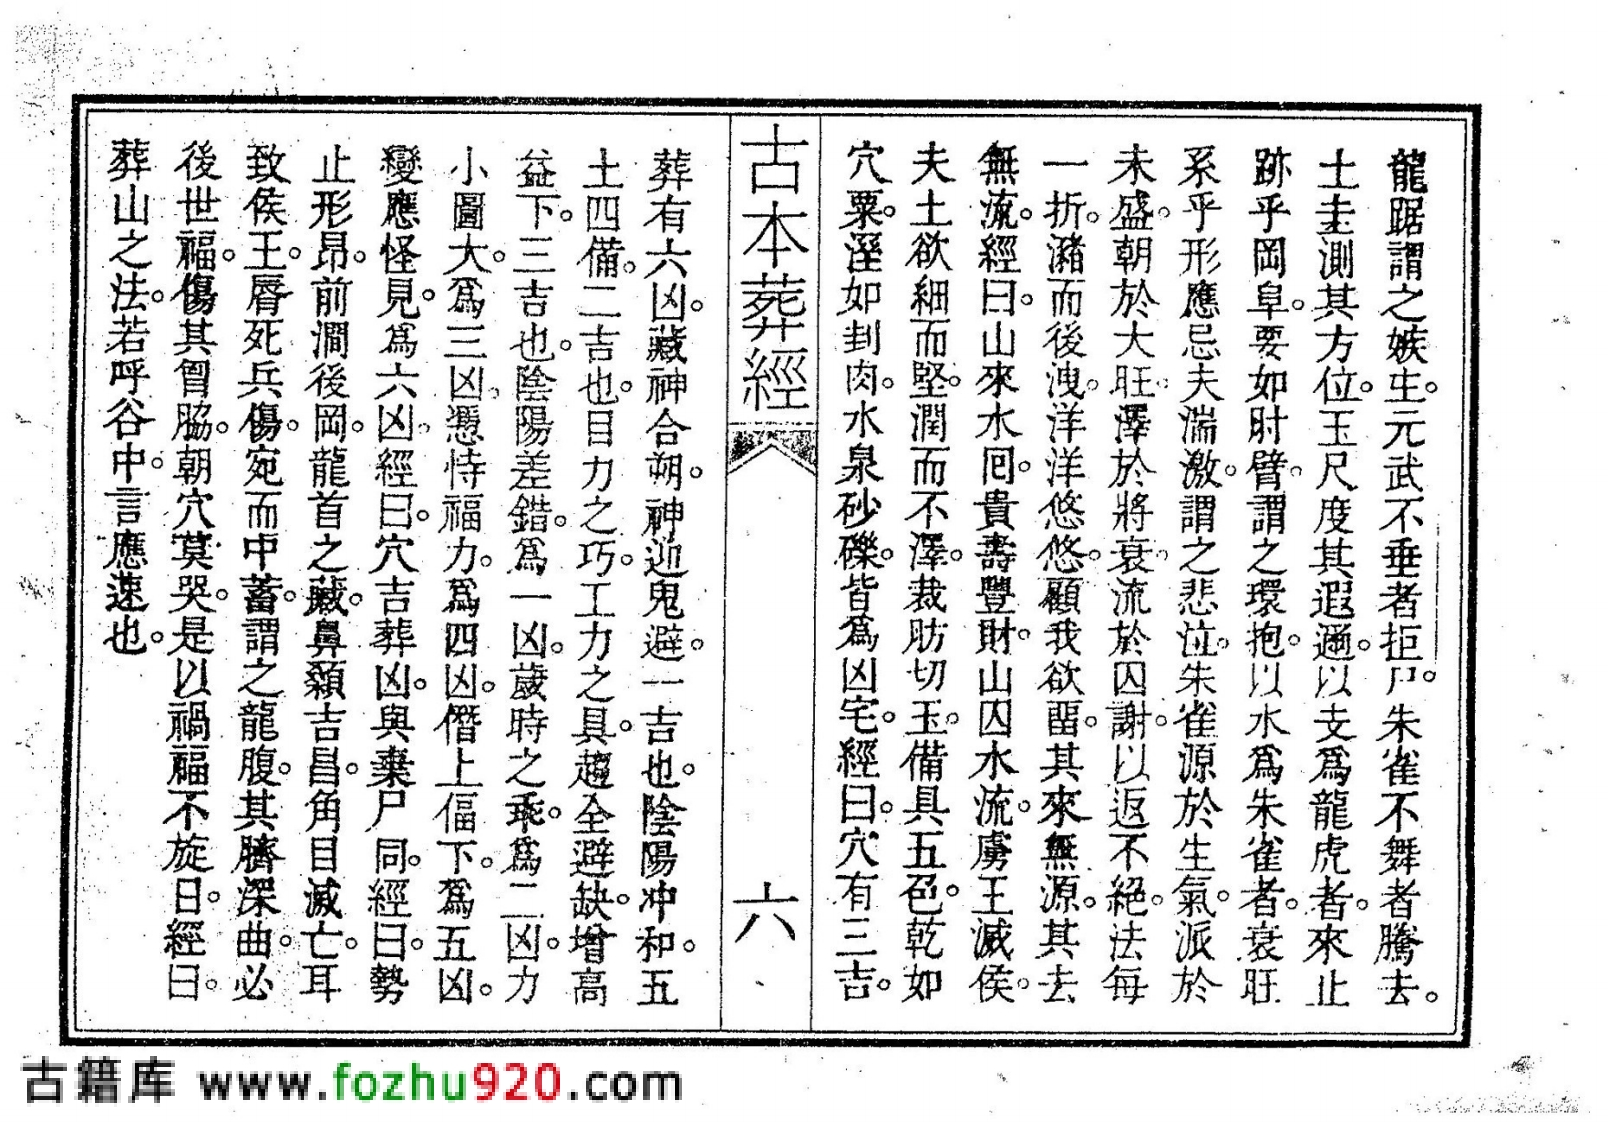 龍踞謂之嫉主。元武不垂者拒尸。朱雀不舞者騰去。
土圭測其方位。玉尺度其遐邇。以支爲龍虎者。來止
跡乎岡阜。要如肘臂。謂之環抱。以水爲朱雀者。衰旺
系乎形應。忌夫湍激。謂之悲泣。朱雀源於生氣。派於
未盛。朝於大旺。澤於將衰。流於囚謝。以返不絕。法每
一折。瀦而後洩。洋洋悠悠。顧我欲畱。其來無源。其去
無流。經曰。山來水囘。貴壽豐財。山囚水流。虜王滅侯。
夫土欲細而堅。潤而不澤。裁肪切玉。備具五色。乾如
穴粟。溼如刲肉。水泉砂礫。皆爲凶宅。經曰。穴有三吉。
古本葬經
六
葬有六凶。藏神合朔。神迎鬼避。一吉也。陰陽冲和。五
土四備。二吉也。目力之巧。工力之具。趨全避缺。增高
益下。三吉也。陰陽差錯。爲一凶。歲時之乖。爲二凶。力
小圖大。爲三凶。憑恃福力。爲四凶。僭上偪下。爲五凶。
變應怪見。爲六凶。經曰。穴吉葬凶。與棄尸同。經曰。勢
止形昂。前澗後岡。龍首之藏。鼻顙吉昌。角目滅亡。耳
致侯王。脣死兵傷。宛而中蓄。謂之龍腹。其臍深曲。必
後世福。傷其胷脇。朝穴莫哭。是以禍福不旋日。經曰。
葬山之法。若呼谷中。言應速也。
古籍库 www.fozhu920.com